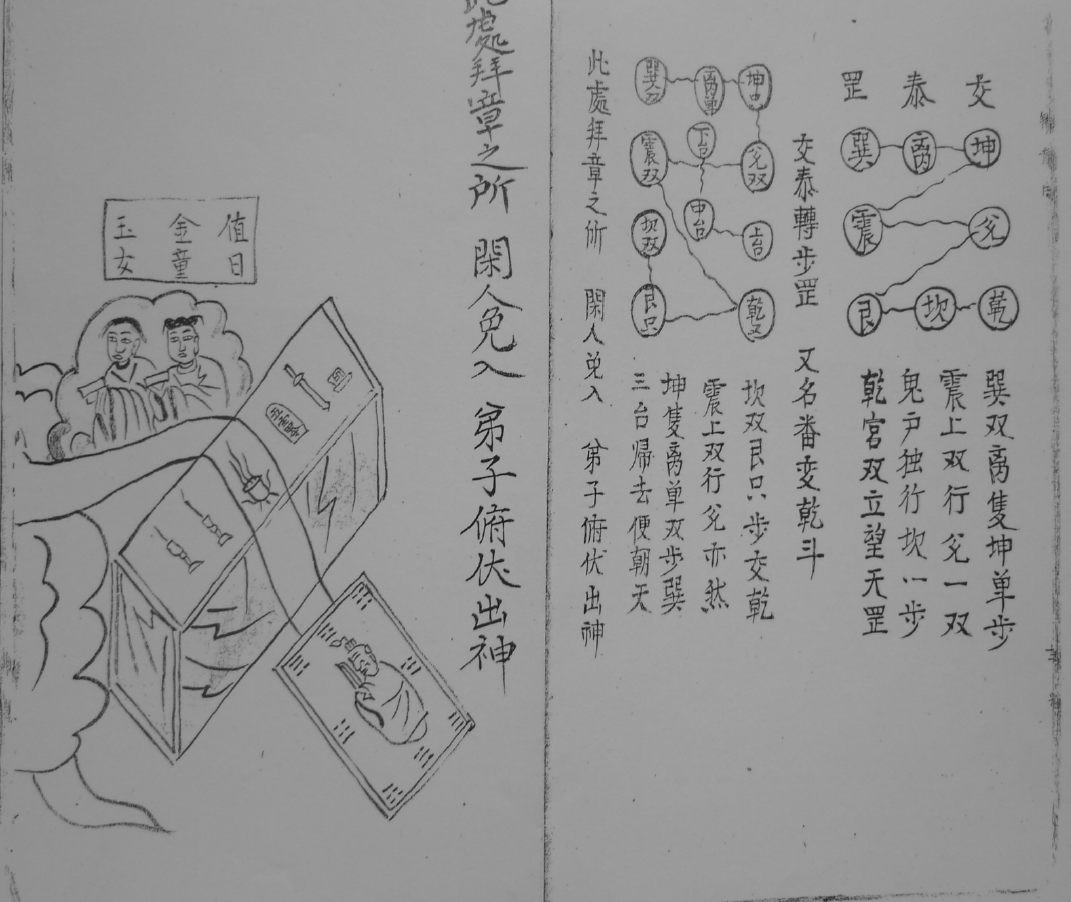 交泰罡
坤 离 巽
兊 震
乾 坎 艮
巽双离隻坤单步
震上双行兊一双
鬼户独行坎一步
乾宫双立望天罡
交泰轉步罡 又名番变乾斗
坤
离单
巽双
兊双
下台
震双
上台
中台
坎双
乾又
艮只
坎双艮只步交乾
震上双行兊亦然
坤隻离单双步巽
三台帰去便朝天
此處拜章之所 閑人免入 弟子俯伏出神
此處拜章之所 閑人免入 弟子俯伏出神
值日
金童
玉女